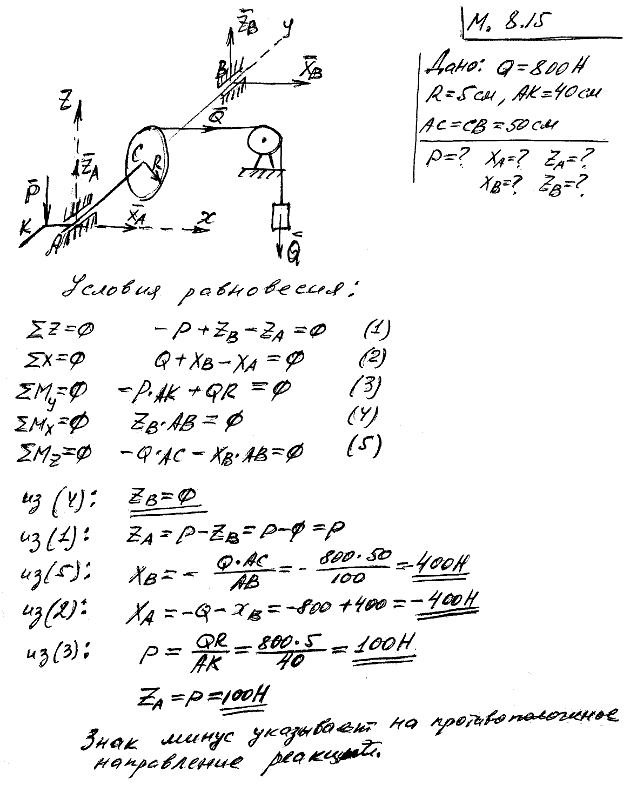 М. 8.15
Дано: Q=800Н
R=5см, AK=40см
AC=CB=50см
P=? XA=? ZA=?
XB=? ZB=?
Z̄B
y
B
X̄B
Z
Q̄
C
R
Z̄A
P̄
K
A
X̄A
x
Q̄
Условия равновесия:
ΣZ=0 -P+ZB-ZA=0 (1)
ΣX=0 Q+XB-XA=0 (2)
ΣMy=0 -P·AK+QR=0 (3)
ΣMx=0 ZB·AB=0 (4)
ΣMz=0 -Q·AC-XB·AB=0 (5)
из(4): ZB=0
из(1): ZA=P-ZB=P-0=P
из(5): XB=- Q·AC/AB =- 800·50/100 =-400Н
из(2): XA=-Q-xB=-800+400=-400Н
из(3): P= QR/AK = 800·5/40 = 100Н
ZA=P=100Н
Знак минус указывает на противоположное
направление реакций.